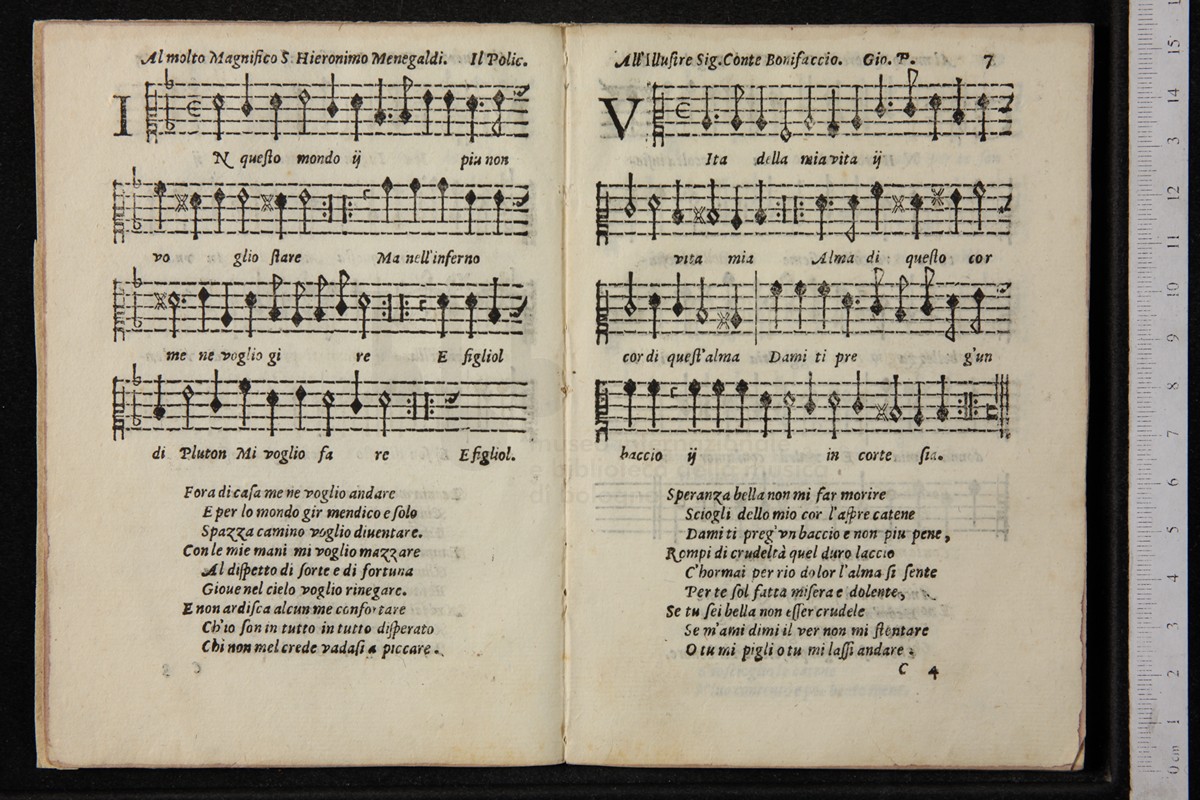 Al molto Magnifico S. Hieronimo Menegaldi. Il Polic.
IN questo mondo ij piu non
vo glio stare Ma nell'inferno
me ne voglio gi re E figliol
di Pluton Mi voglio fa re E figliol.
Fora di casa me ne voglio andare
E per lo mondo gir mendico e solo
Spazza camino voglio diuentare.
Con le mie mani mi voglio mazzare
Al dispetto di sorte e di fortuna
Gioue nel cielo voglio rinegare.
E non ardisca alcun me confortare
Ch'io son in tutto in tutto disperato
Chi non mel crede vadasi a piccare.
All'Illustre Sig. Conte Bonifaccio. Gio. P. 7
VIta della mia vita ij
vita mia Alma di questo cor
cor di quest'alma Dami ti pre g'un
baccio ij in corte sia.
Speranza bella non mi far morire
Sciogli dello mio cor l'aspre catene
Dami ti preg'vn baccio e non piu pene,
Rompi di crudeltà quel duro laccio
C'hormai per rio dolor l'alma si sente
Per te sol fatta misera e dolente,
Se tu sei bella non esser crudele
Se m'ami dimi il ver non mi stentare
O tu mi pigli o tu mi lassi andare.
C 4
museo internazionale
e biblioteca della musica
di bologna
0 cm 1 2 3 4 5 6 7 8 9 10 11 12 13 14 15